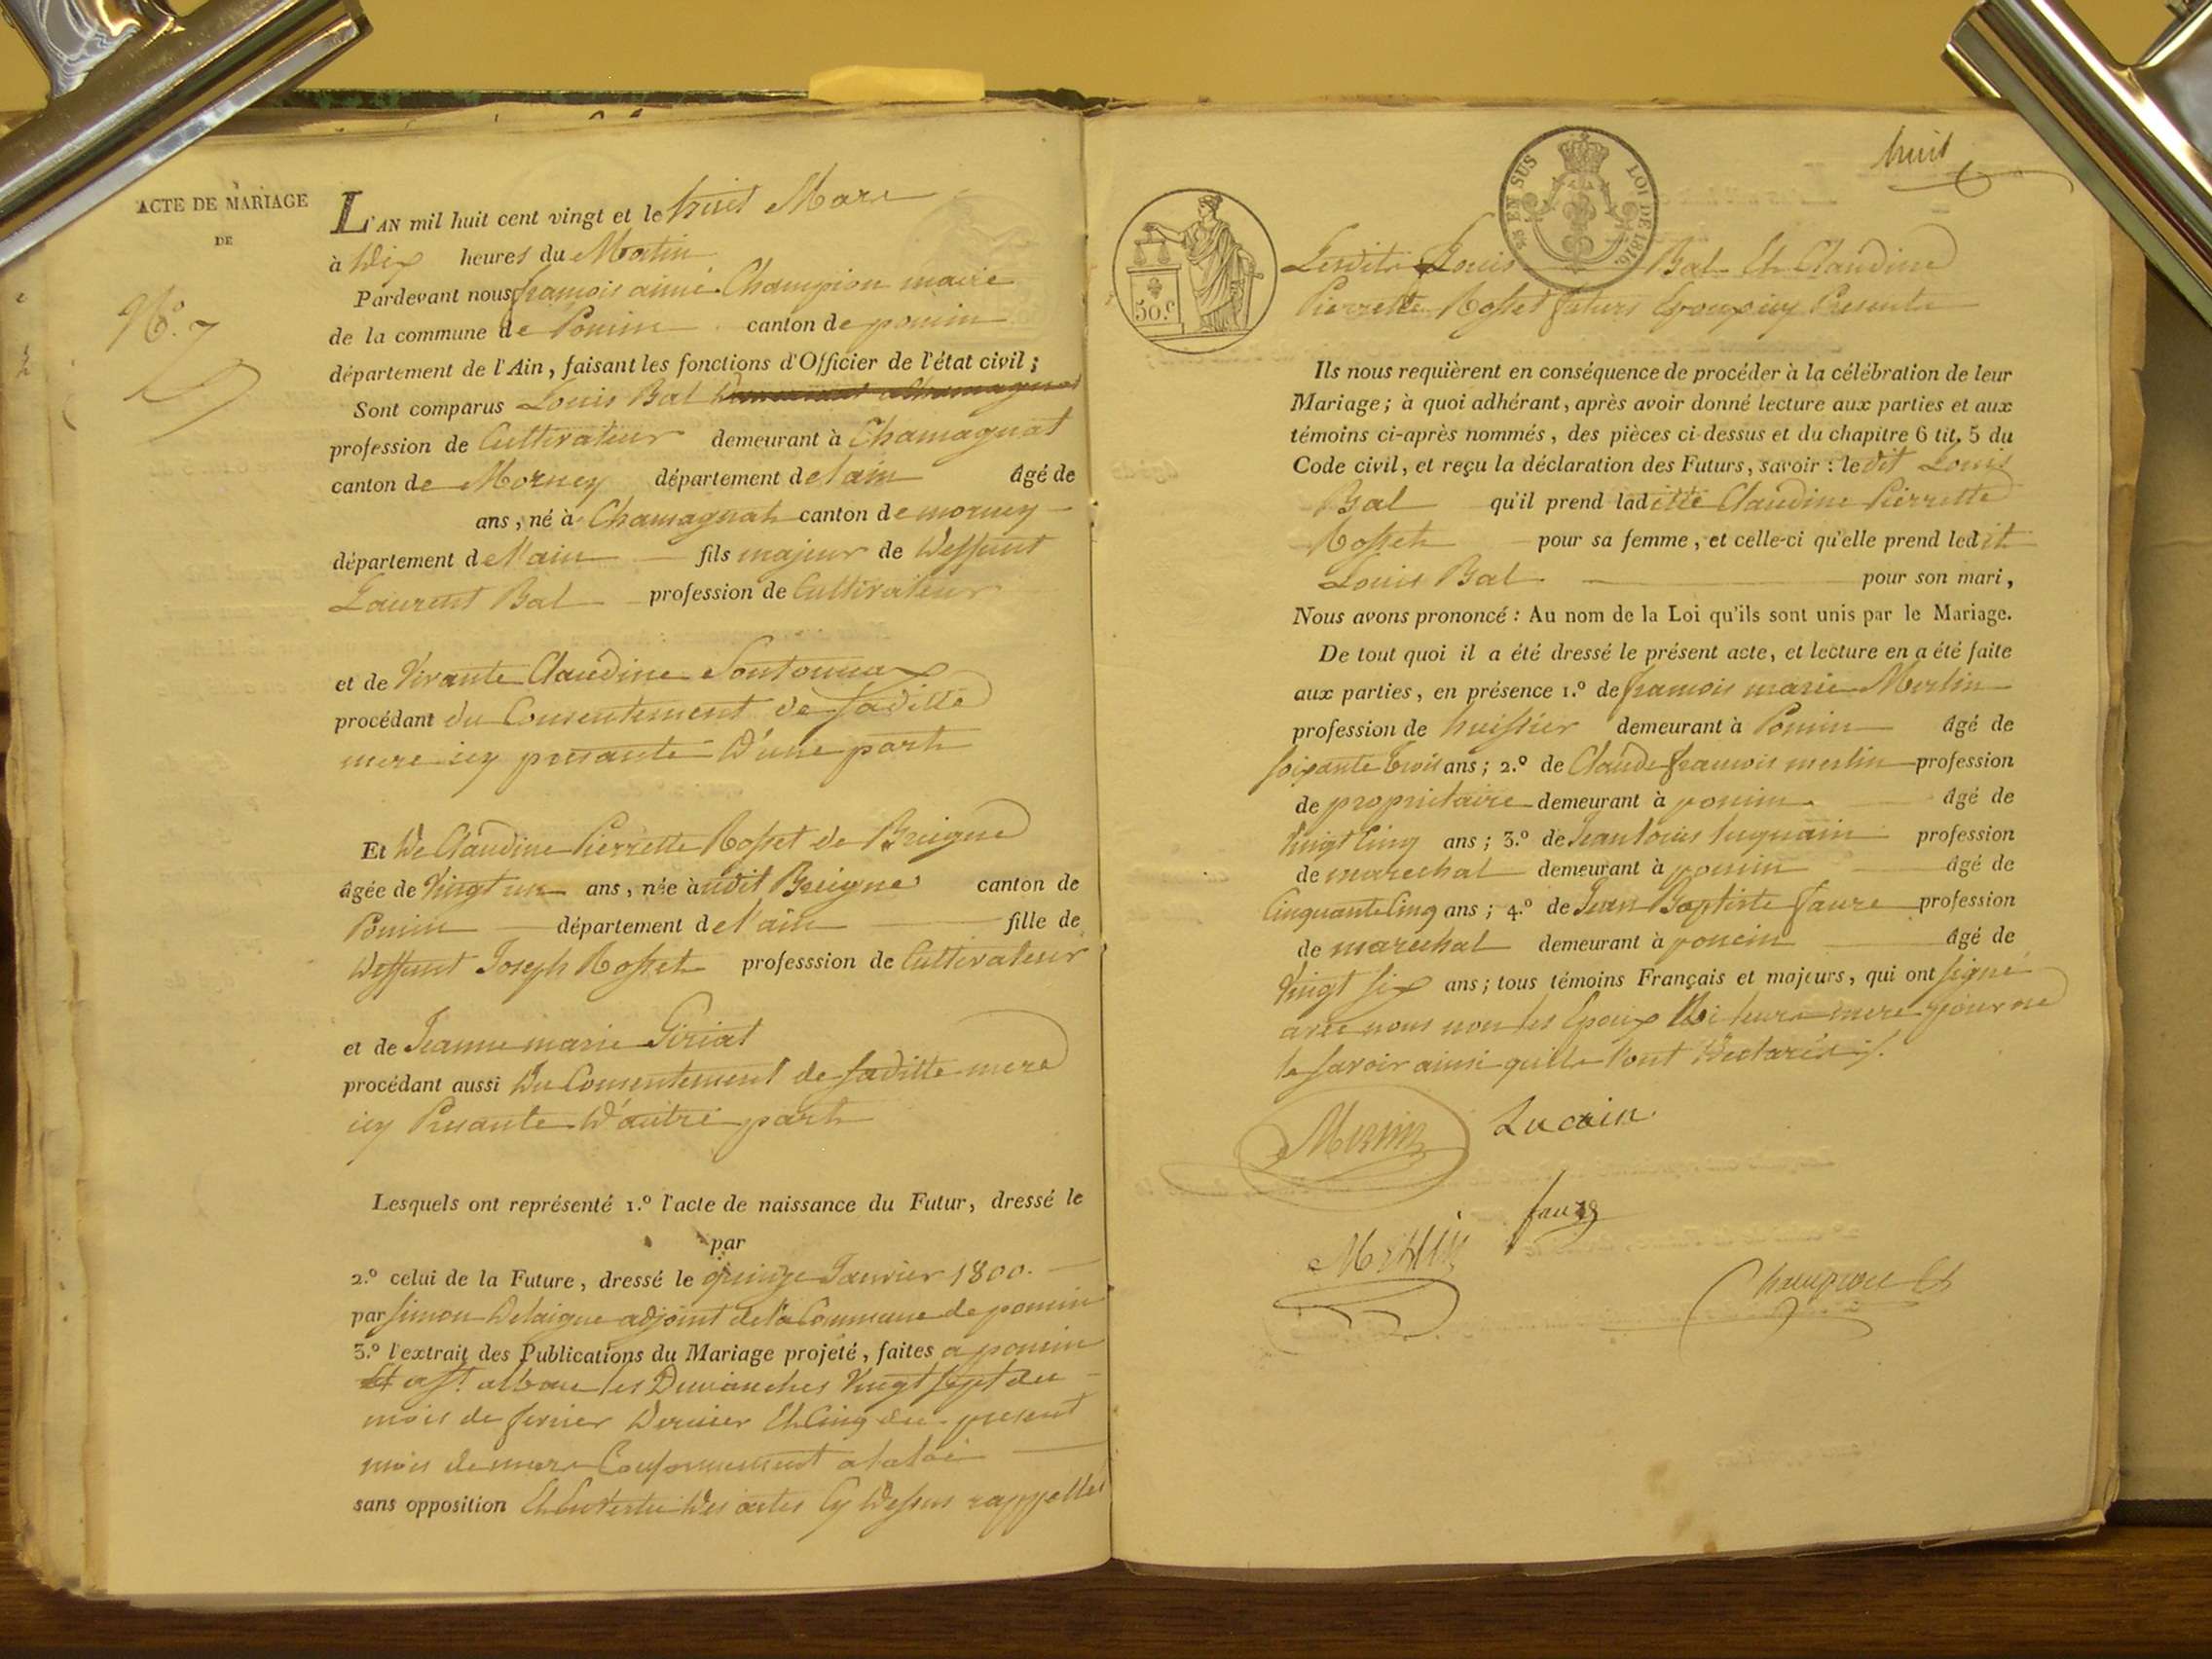 ACTE DE MARIAGE
DE
N.o 7
L'AN mil huit cent vingt et le huit Mars
à Dix heures du Matin
Pardevant nous françois aimé Champion maire
de la commune de Poncin canton de poncin
département de l'Ain, faisant les fonctions d'Officier de l'état civil;
Sont comparus Louis Bal
profession de Cultivateur demeurant à Chamagnat
canton de Morney département de lain âgé de
ans, né à Chamagnat canton de morney
département de l'ain fils majeur de Deffunt
Laurent Bal profession de Cultivateur
et de Vivante Claudine Sontonnax
procédant du Consentement de saditte
mere icy presante D'une part
Et De Claudine Pierrette Rosset de Breigne
âgée de Vingt un ans, née audit Breigne canton de
Poncin département de l'ain fille de
Deffunt Joseph Rosset professsion de Cultivateur
et de Jeanne marie Giriat
procédant aussi Du Consentement de saditte mere
icy Presante D'autre part
Lesquels ont représenté 1.º l'acte de naissance du Futur, dressé le
par
2.º celui de la Future, dressé le quinze Janvier 1800.
par simon Delaigue adjoint de la Commune de poncin
3.º l'extrait des Publications du Mariage projeté, faites a poncin
Et a st. alban les Dimanches Vingt sept du
mois de fevrier Dernier Et Cinq du present
mois de mars Conformement a la loi
sans opposition Et En Vertu Des actes Cy Dessus rappellés
huit
EN SUS LOI DE 1816.
50.c
Lesdits Louis Bal Et Claudine
Pierrette Rosset futurs Epoux icy Presents
Ils nous requièrent en conséquence de procéder à la célébration de leur
Mariage; à quoi adhérant, après avoir donné lecture aux parties et aux
témoins ci-après nommés, des pièces ci-dessus et du chapitre 6 tit. 5 du
Code civil, et reçu la déclaration des Futurs, savoir: le dit Louis
Bal qu'il prend laditte Claudine Pierrette
Rosset pour sa femme, et celle-ci qu'elle prend ledit
Louis Bal pour son mari,
Nous avons prononcé: Au nom de la Loi qu'ils sont unis par le Mariage.
De tout quoi il a été dressé le présent acte, et lecture en a été faite
aux parties, en présence 1.º de françois marie Merlin
profession de huissier demeurant à Poncin âgé de
soixante trois ans; 2.º de Claude françois merlin profession
de proprietaire demeurant à poncin âgé de
Vingt Cinq ans; 3.º de Jean louis luquain profession
de marechal demeurant à poncin âgé de
Cinquante Cinq ans; 4.º de Jean Baptiste faure profession
de marechal demeurant à poncin âgé de
Vingt six ans; tous témoins Français et majeurs, qui ont signé
avec nous non les Epoux Ni leurs mere pour ne
le savoir ainsi quils l'ont Declaré
Merlin Lucain
faure
Merlin
Champion